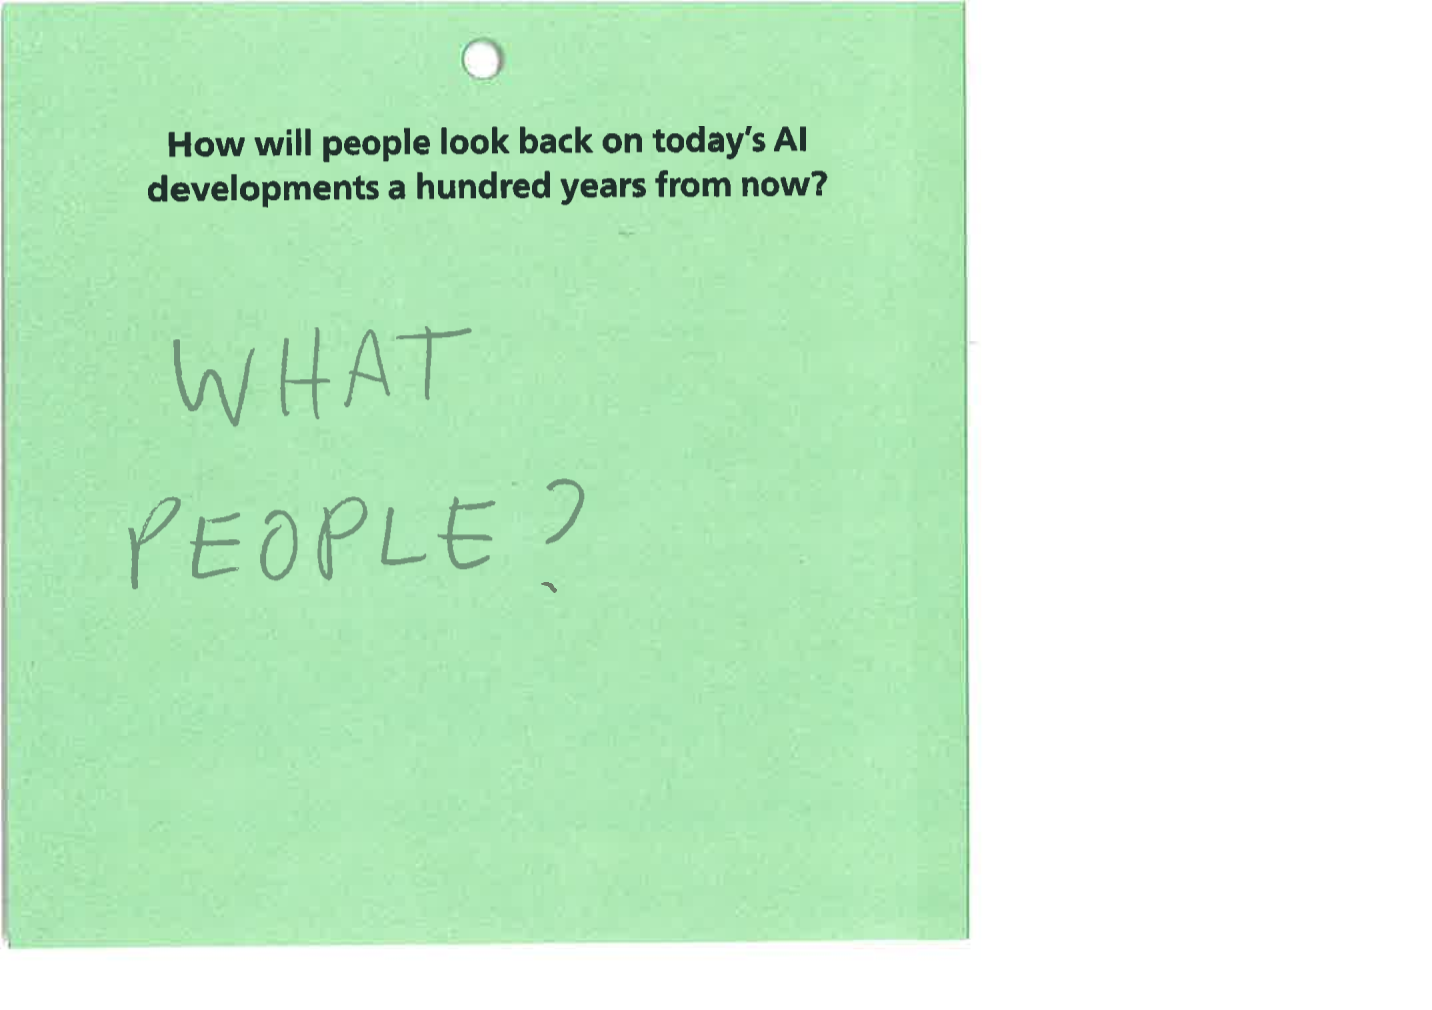 How will people look back on today's AI
developments a hundred years from now?
WHAT
PEOPLE?